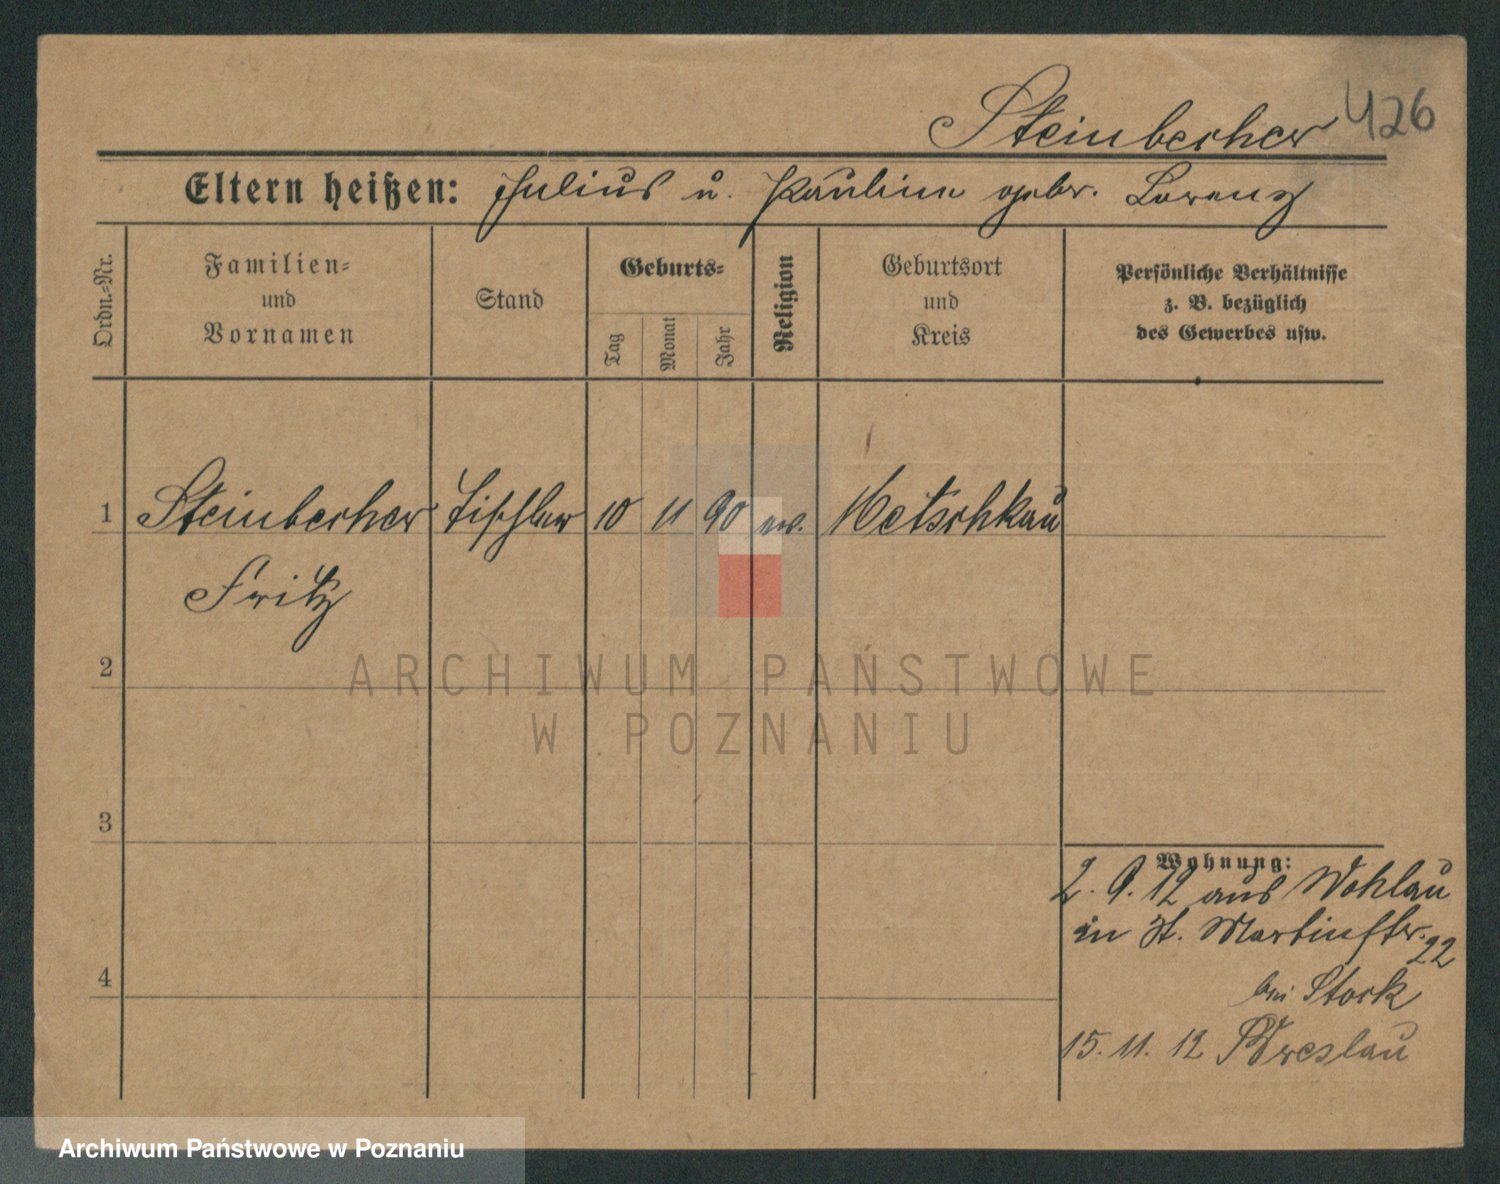 Steinbecher 426
Eltern heißen: Julius u. Pauline gebr. Lorenz
Ordn.-Nr.
Familien-
und
Vornamen
Stand
Geburts-
Tag
Monat
Jahr
Religion
Geburtsort
und
Kreis
Persönliche Verhältnisse
z. B. bezüglich
des Gewerbes usw.
1 Steinbecher Tischler 10 11 90 ev. Metschkau
Fritz
2
3
4
Wohnung:
2. 9. 12 aus Wohlau
in St. Martinstr. 22
bei Stock
15. 11. 12 Breslau
ARCHIWUM PAŃSTWOWE
W POZNANIU
Archiwum Państwowe w Poznaniu